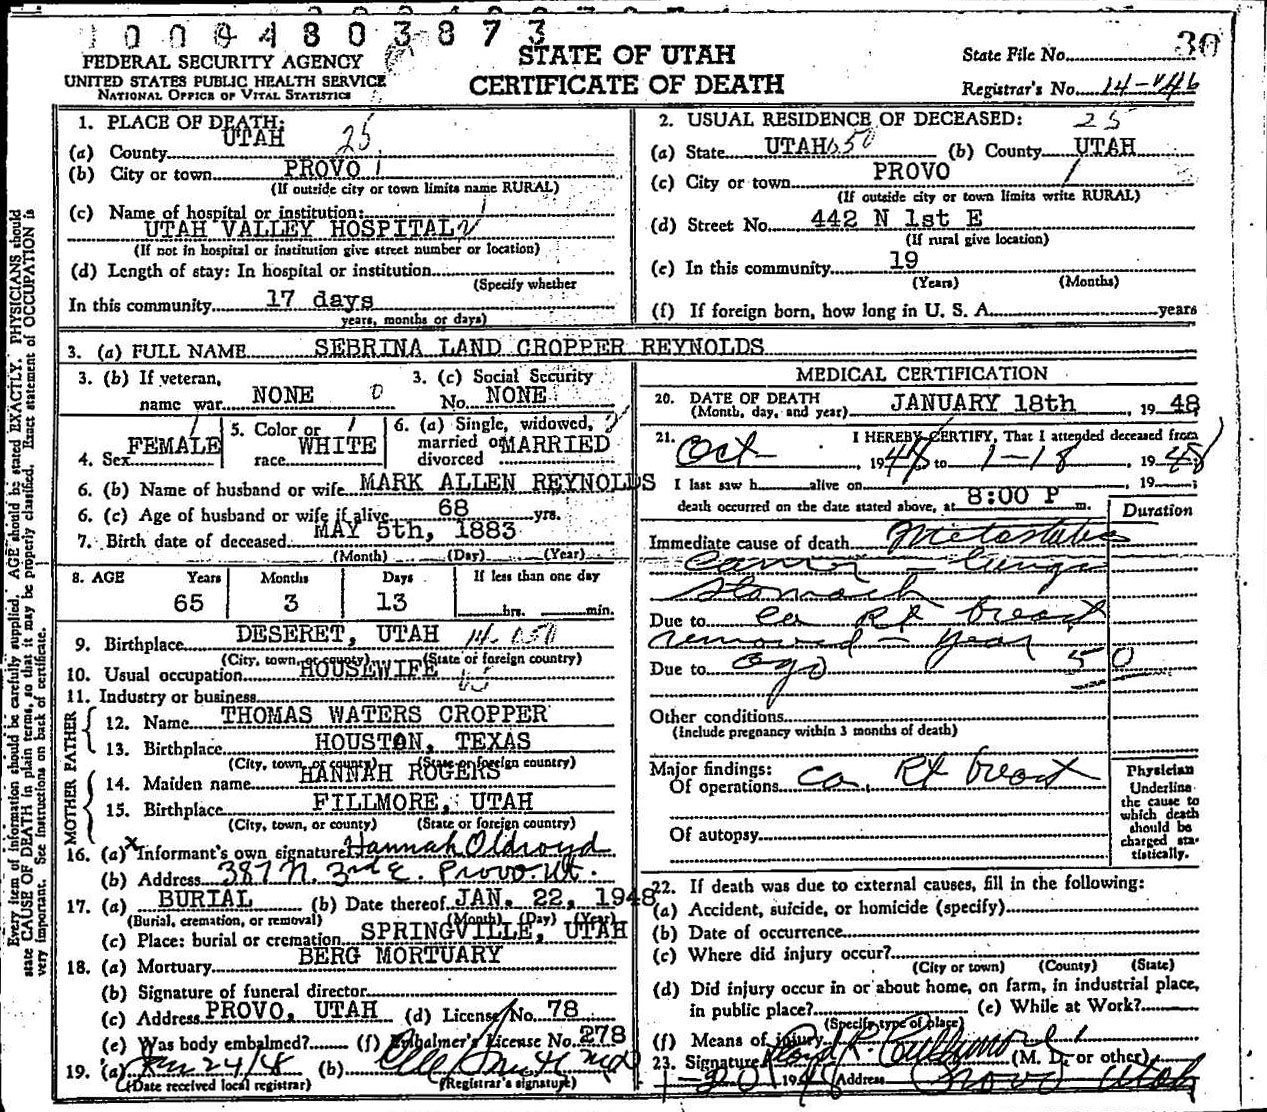 1 0 0 0 4 8 0 3 8 7 3
FEDERAL SECURITY AGENCY
UNITED STATES PUBLIC HEALTH SERVICE
NATIONAL OFFICE OF VITAL STATISTICS
STATE OF UTAH
CERTIFICATE OF DEATH
State File No. 30
Registrar's No. 14-
Every item of information should be carefully supplied. AGE should be stated EXACTLY. PHYSICIANS should
state CAUSE OF DEATH in plain terms, so that it may be properly classified. Exact statement of OCCUPATION is
very important. See instructions on back of certificate.
1. PLACE OF DEATH: 25
(a) County UTAH
(b) City or town PROVO 1
(If outside city or town limits name RURAL)
(c) Name of hospital or institution:
UTAH VALLEY HOSPITAL
(If not in hospital or institution give street number or location)
(d) Length of stay: In hospital or institution
(Specify whether
In this community 17 days
years, months or days)
2. USUAL RESIDENCE OF DECEASED: 25
(a) State UTAH 650 (b) County UTAH
(c) City or town PROVO 1
(If outside city or town limits write RURAL)
(d) Street No. 442 N 1st E
(If rural give location)
(e) In this community 19
(Years) (Months)
(f) If foreign born, how long in U. S. A. years
3. (a) FULL NAME SEBRINA LAND CROPPER REYNOLDS
3. (b) If veteran, name war NONE 0
3. (c) Social Security No. NONE
4. Sex FEMALE
5. Color or race WHITE
6. (a) Single, widowed, married or divorced MARRIED
6. (b) Name of husband or wife MARK ALLEN REYNOLDS
6. (c) Age of husband or wife if alive 68 yrs.
7. Birth date of deceased MAY 5th, 1883
(Month) (Day) (Year)
8. AGE Years Months Days If less than one day
65 3 13 hrs. min.
9. Birthplace DESERET, UTAH 14 050
(City, town, or county) (State of foreign country)
10. Usual occupation HOUSEWIFE
11. Industry or business
FATHER
12. Name THOMAS WATERS CROPPER
13. Birthplace HOUSTON, TEXAS
(City, town, or county) (State or foreign country)
MOTHER
14. Maiden name HANNAH ROGERS
15. Birthplace FILLMORE, UTAH
(City, town, or county) (State or foreign country)
16. (a) x Informant's own signature Hannah Oldroyd
(b) Address 387 N. 3rd E. Provo. Ut.
17. (a) BURIAL (b) Date thereof JAN. 22, 1948
(Burial, cremation, or removal) (Month) (Day) (Year)
(c) Place: burial or cremation SPRINGVILLE, UTAH
18. (a) Mortuary BERG MORTUARY
(b) Signature of funeral director
(c) Address PROVO, UTAH (d) License No. 78
(e) Was body embalmed? (f) Embalmer's License No. 278
19. (a) Jan 24/48 (b)
(Date received local registrar) (Registrar's signature)
MEDICAL CERTIFICATION
20. DATE OF DEATH
(Month, day, and year) JANUARY 18th, 1948
21. I HEREBY CERTIFY, That I attended deceased from
Oct, 194 to 1-18, 1948
I last saw h alive on , 19 ;
death occurred on the date stated above, at 8:00 P m.
Duration
Immediate cause of death Metastatic
Cancer - lungs
stomach
Due to ca Rt breast
removed - year
Due to ago 50
Other conditions
(Include pregnancy within 3 months of death)
Major findings:
Of operations ca. Rt breast
Of autopsy
Physician
Underline
the cause to
which death
should be
charged sta-
tistically.
22. If death was due to external causes, fill in the following:
(a) Accident, suicide, or homicide (specify)
(b) Date of occurrence
(c) Where did injury occur?
(City or town) (County) (State)
(d) Did injury occur in or about home, on farm, in industrial place,
in public place? (e) While at Work?
(Specify type of place)
(f) Means of injury
23. Signature (M. D. or other)
1-20 1948 Address Provo Utah